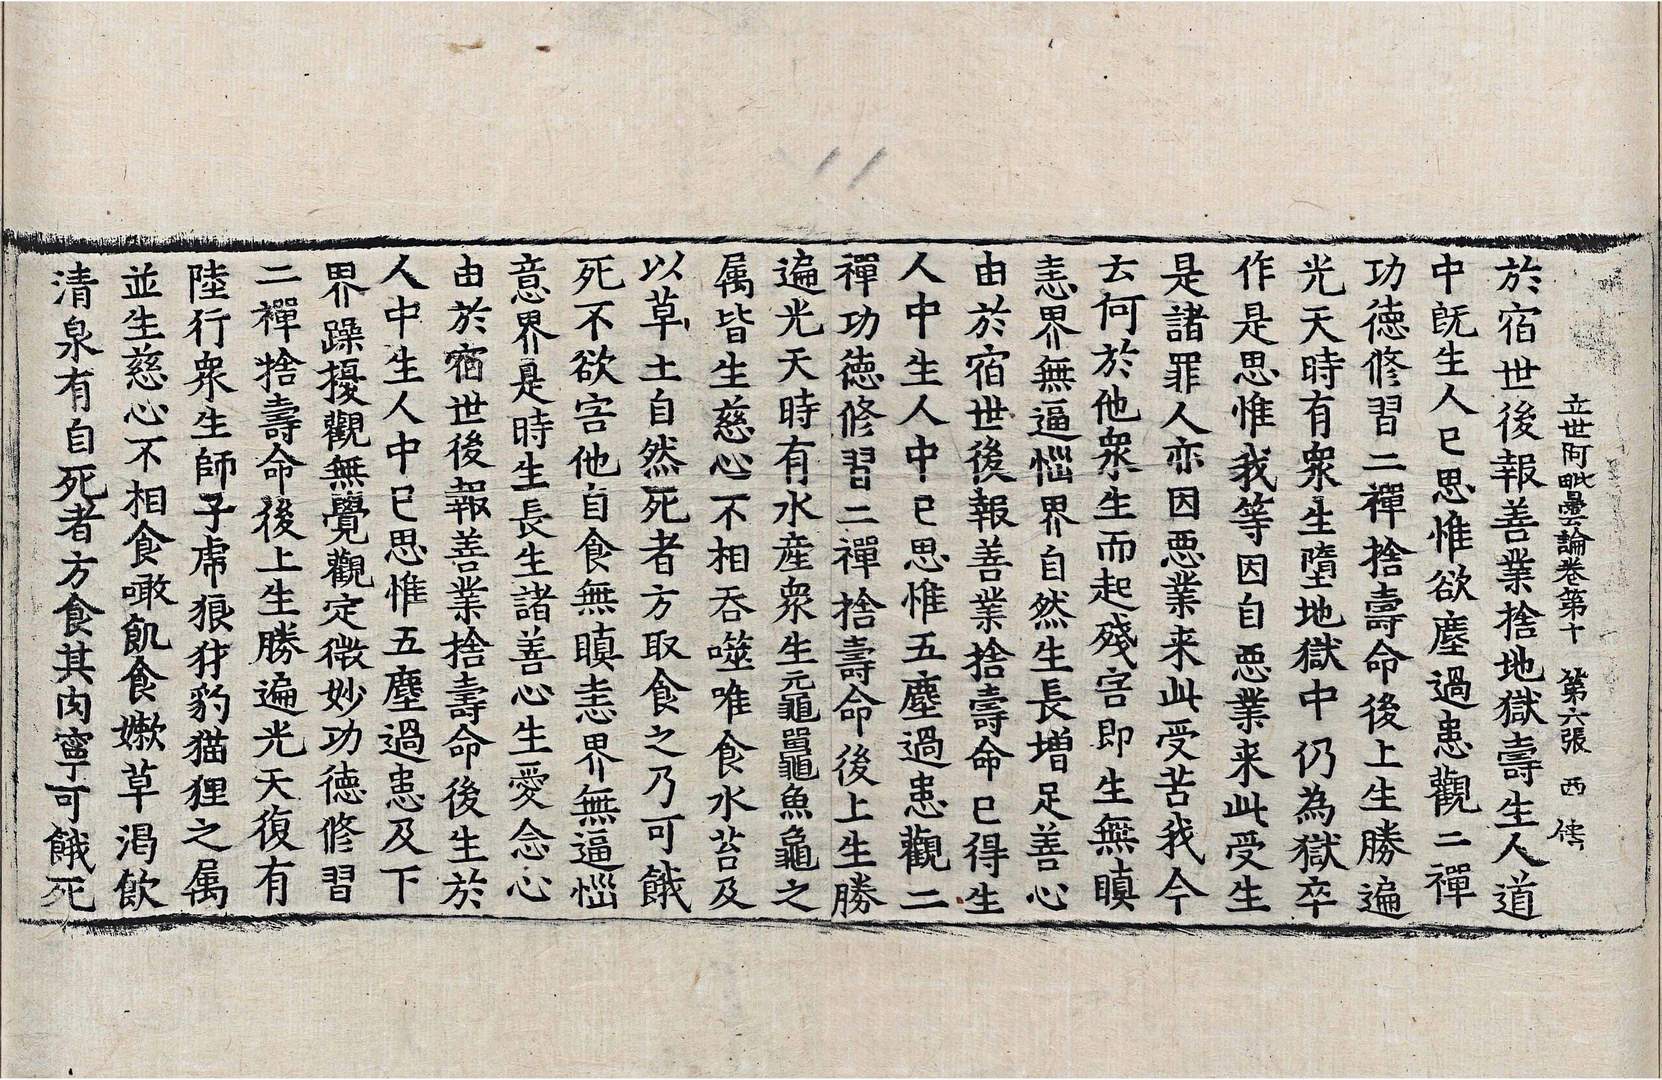 立世阿毗曇論卷第十 第六張 西
於宿世後報善業捨地獄壽生人道
中旣生人已思惟欲塵過患觀二禪
功德修習二禪捨壽命後上生勝遍
光天時有衆生墮地獄中仍為獄卒
作是思惟我等因自惡業来此受生
是諸罪人亦因惡業来此受苦我今
云何於他衆生而起殘害即生無瞋
恚界無逼惱界自然生長増足善心
由於宿世後報善業捨壽命已得生
人中生人中已思惟五塵過患觀二
禪功德修習二禪捨壽命後上生勝
遍光天時有水産衆生元龜鼉龜魚龜之
属皆生慈心不相吞噬唯食水苔及
以草土自然死者方取食之乃可餓
死不欲害他自食無瞋恚界無逼惱
意界是時生長生諸善心生愛念心
由於宿世後報善業捨壽命後生於
人中生人中已思惟五塵過患及下
界躁擾觀無覺觀定微妙功德修習
二禪捨壽命後上生勝遍光天復有
陸行衆生師子虎狼犲豹猫狸之属
並生慈心不相食噉飢食嫰草渴飲
清泉有自死者方食其肉寧可餓死